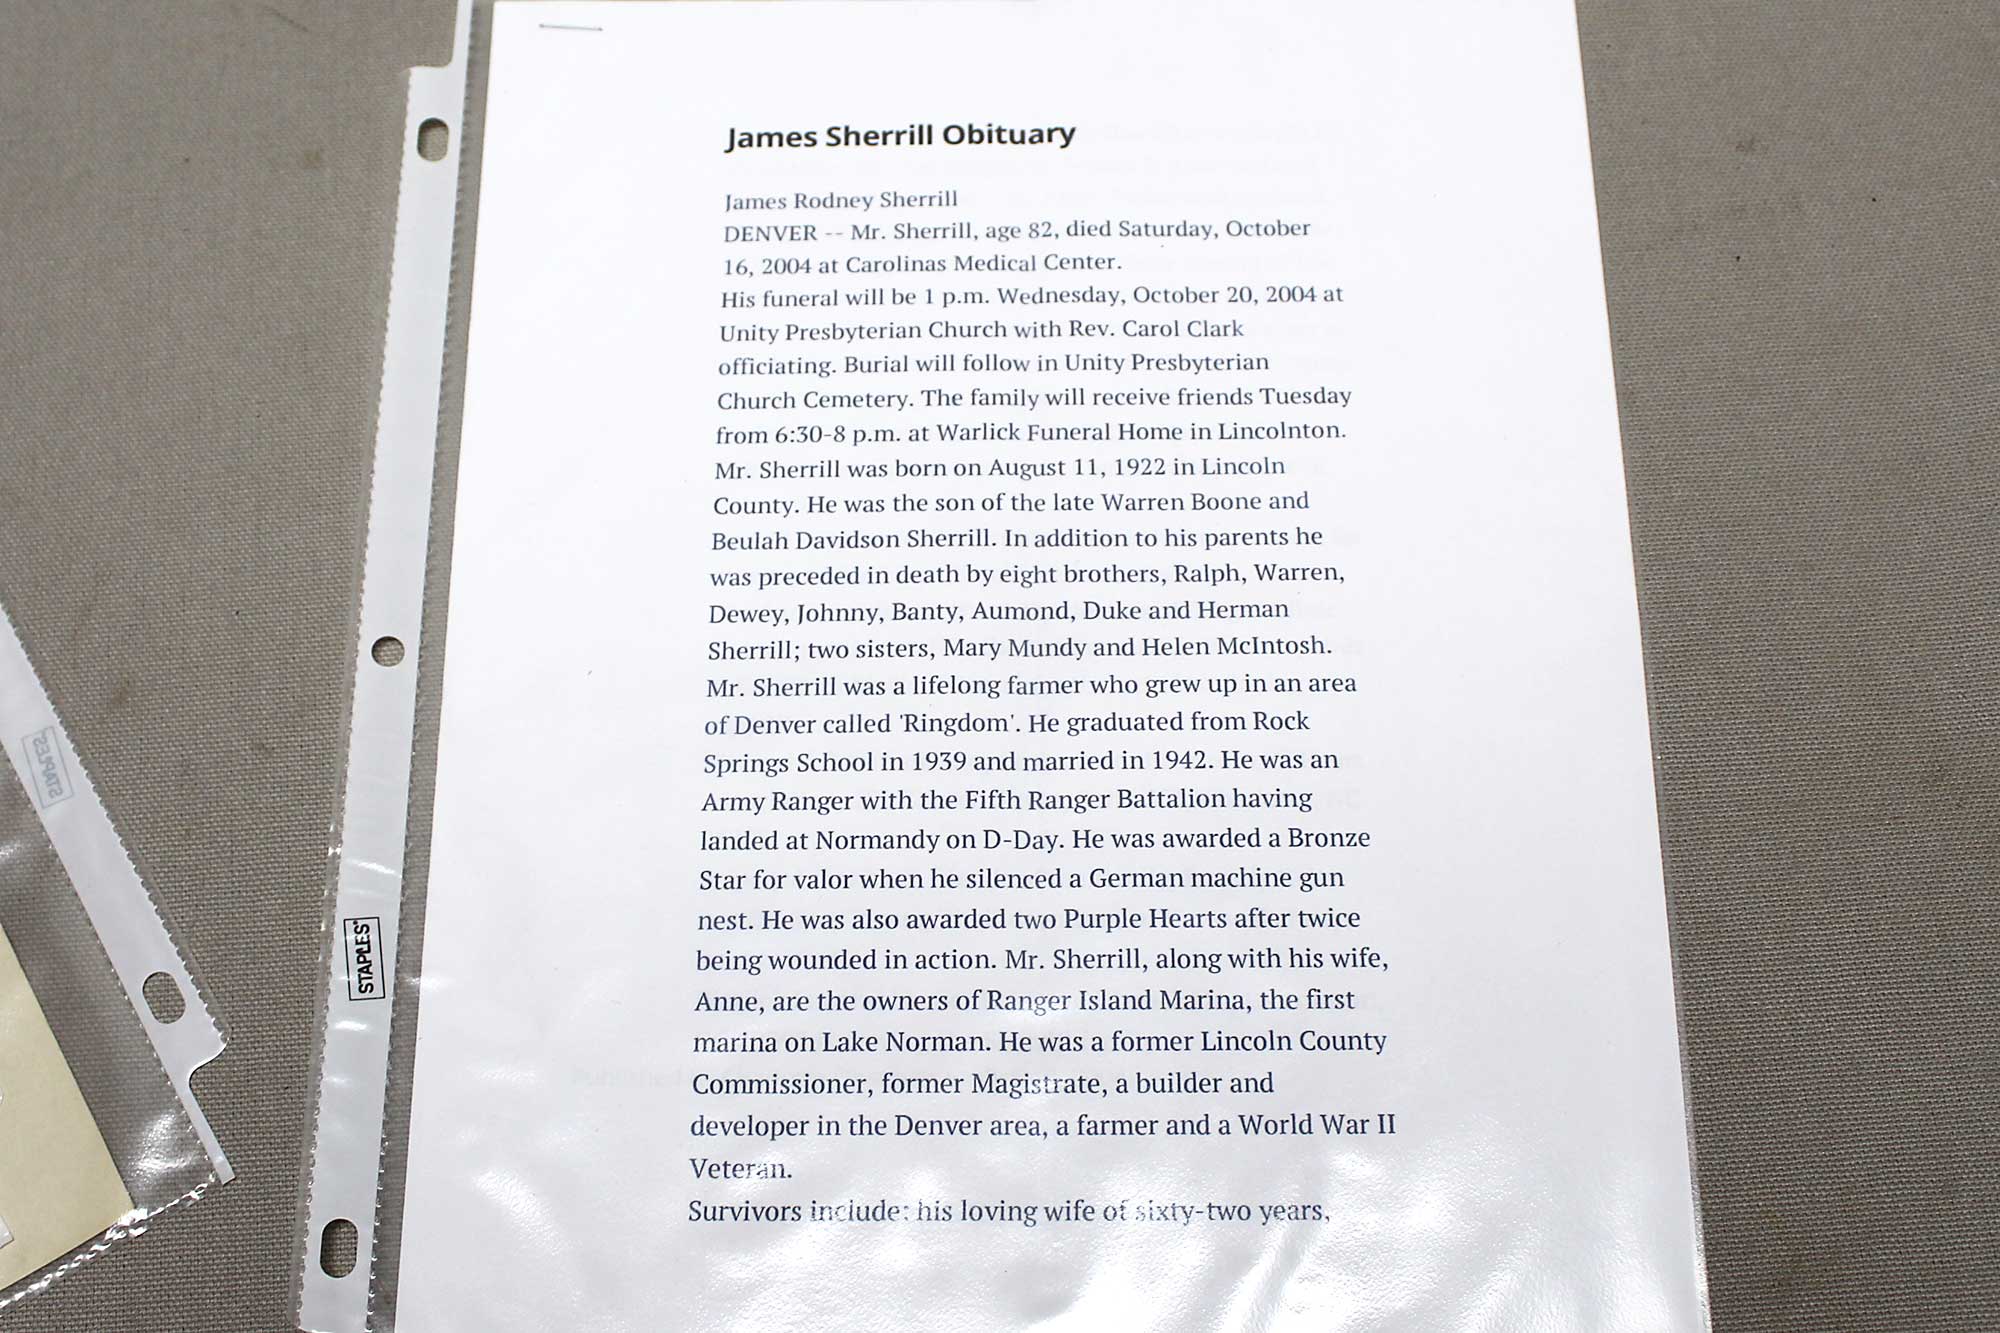 James Sherrill Obituary
James Rodney Sherrill
DENVER -- Mr. Sherrill, age 82, died Saturday, October
16, 2004 at Carolinas Medical Center.
His funeral will be 1 p.m. Wednesday, October 20, 2004 at
Unity Presbyterian Church with Rev. Carol Clark
officiating. Burial will follow in Unity Presbyterian
Church Cemetery. The family will receive friends Tuesday
from 6:30-8 p.m. at Warlick Funeral Home in Lincolnton.
Mr. Sherrill was born on August 11, 1922 in Lincoln
County. He was the son of the late Warren Boone and
Beulah Davidson Sherrill. In addition to his parents he
was preceded in death by eight brothers, Ralph, Warren,
Dewey, Johnny, Banty, Aumond, Duke and Herman
Sherrill; two sisters, Mary Mundy and Helen McIntosh.
Mr. Sherrill was a lifelong farmer who grew up in an area
of Denver called 'Ringdom'. He graduated from Rock
Springs School in 1939 and married in 1942. He was an
Army Ranger with the Fifth Ranger Battalion having
landed at Normandy on D-Day. He was awarded a Bronze
Star for valor when he silenced a German machine gun
nest. He was also awarded two Purple Hearts after twice
being wounded in action. Mr. Sherrill, along with his wife,
Anne, are the owners of Ranger Island Marina, the first
marina on Lake Norman. He was a former Lincoln County
Commissioner, former Magistrate, a builder and
developer in the Denver area, a farmer and a World War II
Veteran.
Survivors include: his loving wife of sixty-two years,
STAPLES
STAPLES